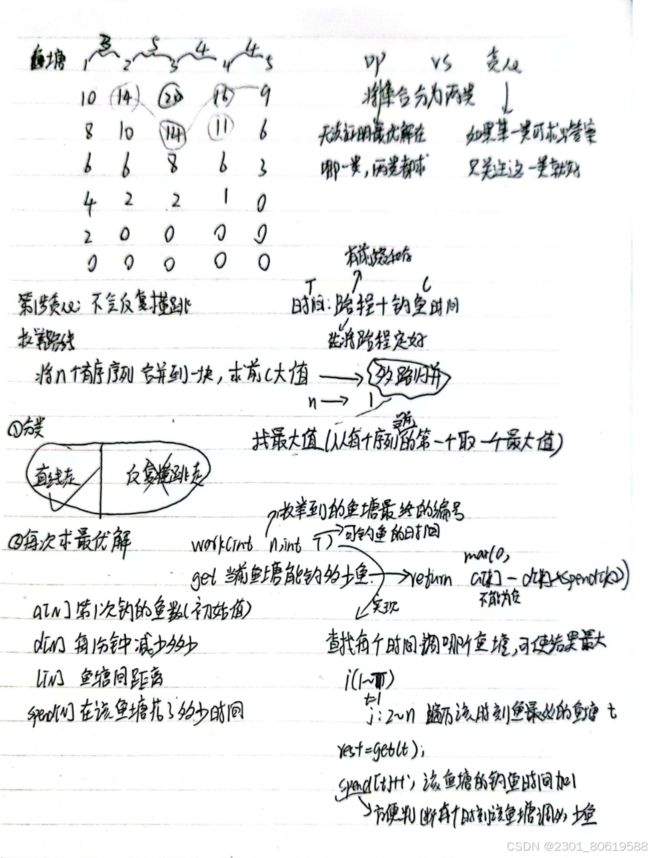 3 5 4 4
鱼塘 1 2 3 4 5
10 14 20 16 9
8 10 14 11 6
6 6 8 6 3
4 2 2 1 0
2 0 0 0 0
0 0 0 0 0
DP VS 贪心
将集合分为两类
无法证明最优解在
哪一类,两类都求
如果某一类可求出答案
只关注这一类就好
第1步贪心: 不会反复横跳
枚举路线
T C
时间: 路程+钓鱼时间
先将路程定好
将n个有序序列合并到一块,求前C大值 → 多路归并
n → 1
找最大值(从每个序列的第一个取一个最大值)
①分类
直线走 反复横跳走
②每次求最优解
枚举到的鱼塘最终的编号
work(int n,int T) 可钓鱼的时间
get 当前鱼塘能钓多少鱼 → return max(0, a[k] - d[k]*spend[k])
不能为负
实现
a[N] 第1次钓的鱼数(初始值)
d[N] 每1分钟减少多少
l[N] 鱼塘间距离
spend[N] 在该鱼塘花了多少时间
查找每个时间调哪个鱼塘,可使结果最大
i(1~T)
t=1
j: 2~n 遍历该时刻鱼最多的鱼塘 t
rest=get(t);
spend[t]++; 该鱼塘的钓鱼时间加1
方便判断每个时刻该鱼塘调多少鱼
CSDN @2301_80619588